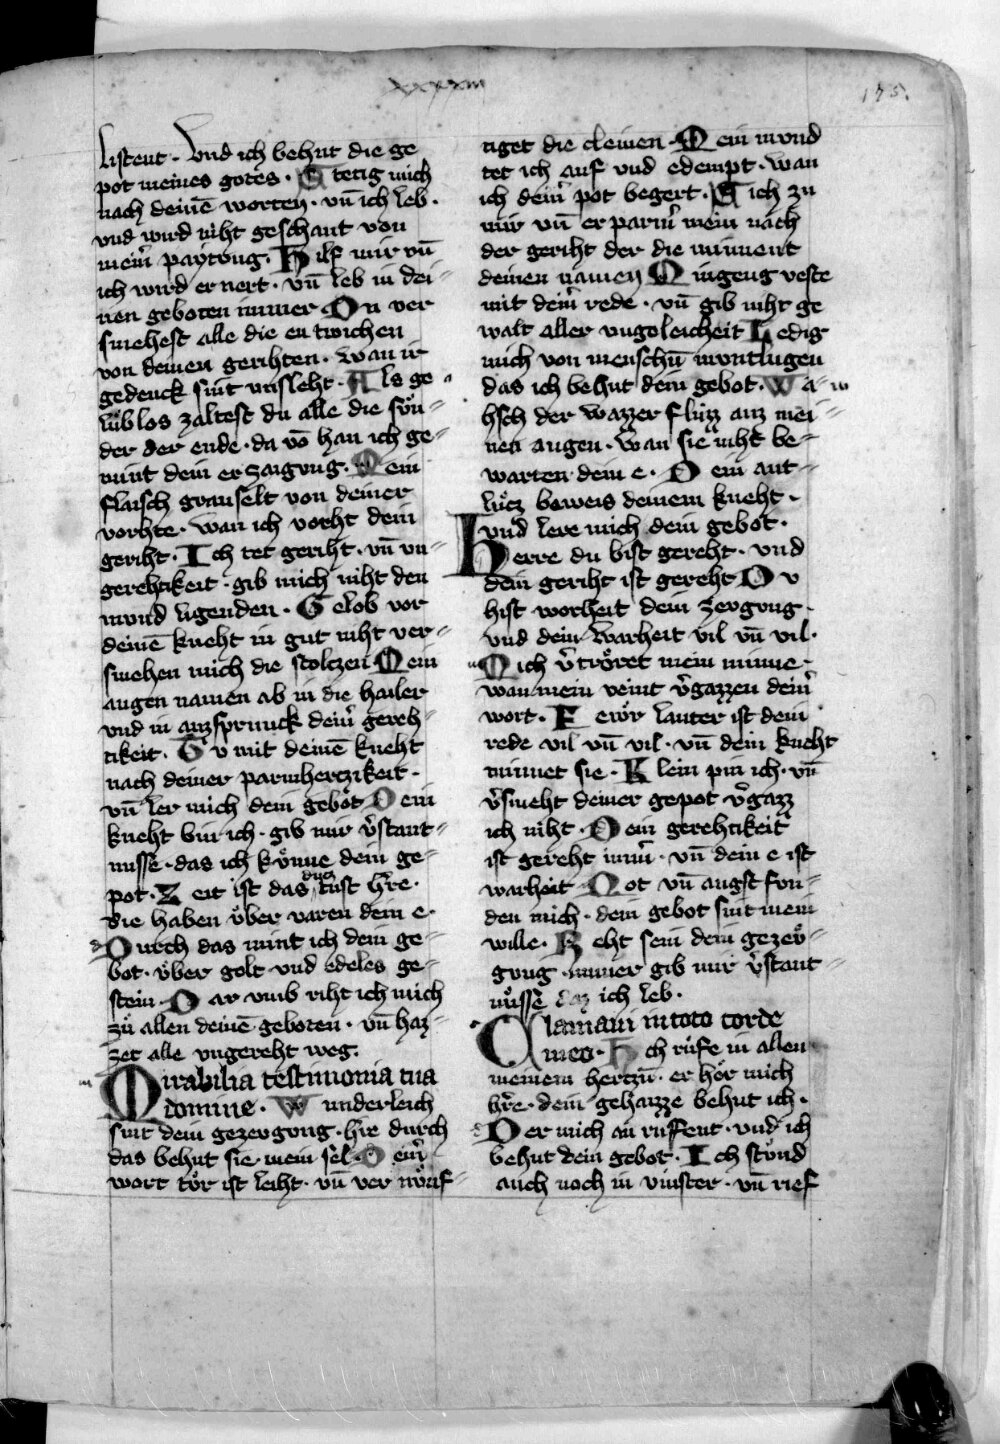 xxxxiii
175.
listent · Vnd ich behut die ge
pot meines gotes · Stetig mich
nach deinē worten · vn̄ ich leb ·
vnd wird niht geschant von
meīm paytvng · Hilf mir vn̄
ich wird ernert · vn̄ leb in dei⸗
nen geboten immer Dv ver
smehest alle die entwichen
von deinen gerihten · wan ir
gedenck sint vnsleht · Als ge
lůblos zaltest du alle die sůn⸗
der der erde · da vō han ich ge⸗
mint dein erzaigvng · Mein
flaisch grauselt von deiner
vorhte · wan ich vorht dein
geriht · Ich tet geriht · vn̄ vn⸗
gerehtikeit · gib mich niht den
mvnd ligenden · Gelob vor
deinē kneht in gut niht ver⸗
smehen mich die stoltzen Mein
augen namen ab in die hailer
vnd in auzsprunck deinr̄ gereh⸗
tikeit · Tv mit deinē kneht
nach deiner parmhertzikeit ·
vn̄ ler mich dein gebot Dein
kneht bin ich · gib mir v̄stant⸗
nusse · das ich kǒnne dein ge⸗
pot · Zeit ist das duz tust hr̄e ·
die haben ůber varen dein e ·
Durch das mint ich dein ge⸗
bot · ůber golt · vnd edeles ge⸗
stein · Dar vmb riht ich mich
zů allen deinē geboten · vn̄ haz⸗
zet alle vngereht weg.
Mirabilia testimonia tua
domine · Wunderleich
sint dein gezevgvng · hr̄e durch
das behut sie mein sel · Deinr̄
wort tǒr ist leiht · vn̄ ver nǒnf⸗
tiget die cleinen · Mein mvnd
tet ich auf vnd edempt · wan
ich deinr̄ pot begert · Sich zu
mir vn̄ erparm̄ mein nach
der geriht der die minnent
deinen namen Mingeng veste
mit deinr̄ rede · vn̄ gib niht ge
walt aller vngeleicheit Ledig
mich von menschn̄ montlugen
das ich behut dein gebot · Wa⸗
hsch der wazzer fluzz auz mei⸗
nen augen · wan sie niht be⸗
warten dein e · Dein ant⸗
lǔtz beweis deinem kneht ·
vnd lere mich dein gebot ·
Herre du bist gereht · vnd
dein geriht ist gereht Dv
hist worheit dein zevgvng ·
vnd dein warheit vil vn̄ vil ·
Mich v̄trǒret mein minne ·
wan mein veint v̄gazzen deinr̄
wort · Fewǒr lauter ist dein
rede vil vn̄ vil · vn̄ dein kneht
minnet sie · Klein pin ich · vn̄
v̄smeht deiner gepot v̄gazz
ich niht · Dein gerehtikeit
ist gereht imm̄ · vn̄ dein e ist
warheit Not vn̄ angst fvn⸗
den mich · dein gebot sint mein
wille · Reht sein dein gezeǒ⸗
gvng immer gib mir v̄stant⸗
nůsse daz ich leb ·
Clamaui in toto corde
meo · Ich růfe in allen
meinem hertzn̄ · er hǒr mich
hr̄e · dein gehaizze behut ich ·
Der mich an ruffent · vnd ich
behut dein gebot · Ich stǒnd
auch noch in vinster · vn̄ rief